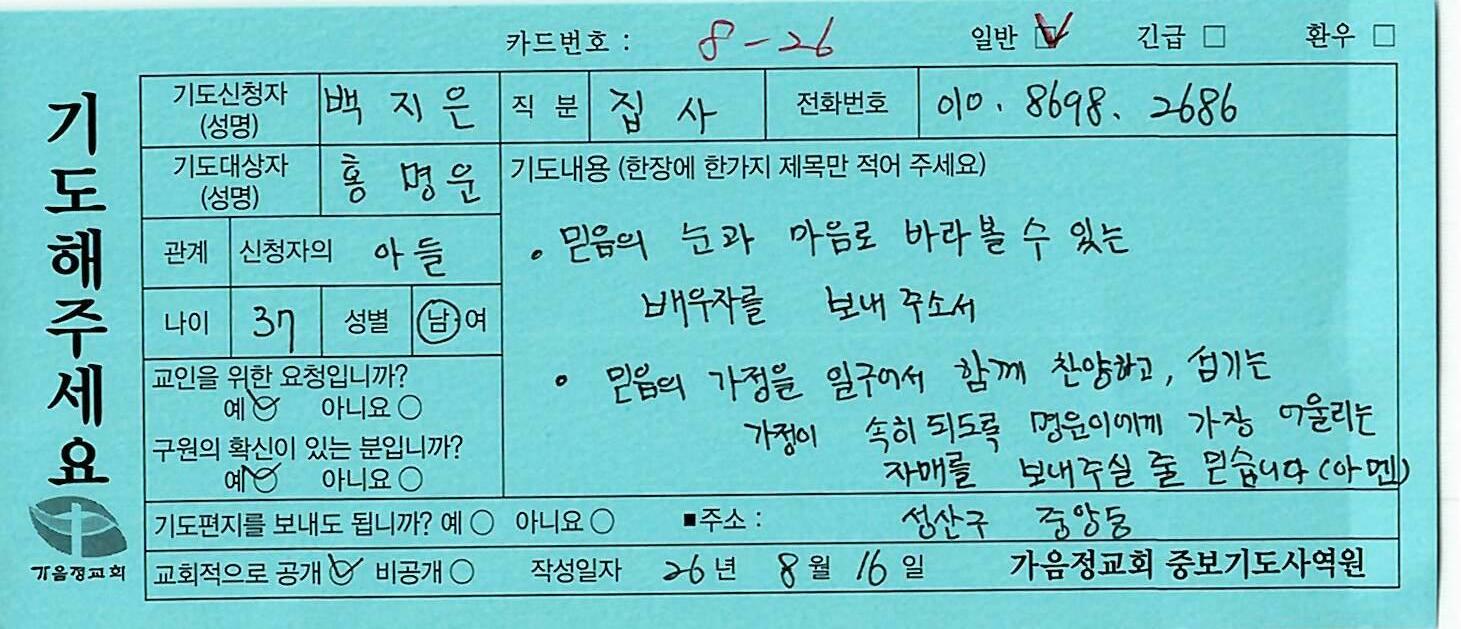 카드번호 : 8-26 일반 ☑ 긴급 □ 환우 □
기도해주세요
기도신청자 (성명) 백지은 직분 집사 전화번호 010. 8698. 2686
기도대상자 (성명) 홍명운
관계 신청자의 아들
나이 37 성별 남·여
교인을 위한 요청입니까?
예 ✓ 아니요 ○
구원의 확신이 있는 분입니까?
예 ✓ 아니요 ○
기도내용 (한장에 한가지 제목만 적어 주세요)
• 믿음의 눈과 마음로 바라볼 수 있는
배우자를 보내 주소서
• 믿음의 가정을 일구어서 함께 찬양하고, 섬기는
가정이 속히 되도록 명운이에게 가장 어울리는
자매를 보내주실 줄 믿습니다 (아멘)
기도편지를 보내도 됩니까? 예 ○ 아니요 ○ ■주소 : 성산구 중앙동
교회적으로 공개 ✓ 비공개 ○ 작성일자 26년 8월 16일 가음정교회 중보기도사역원
가음정교회